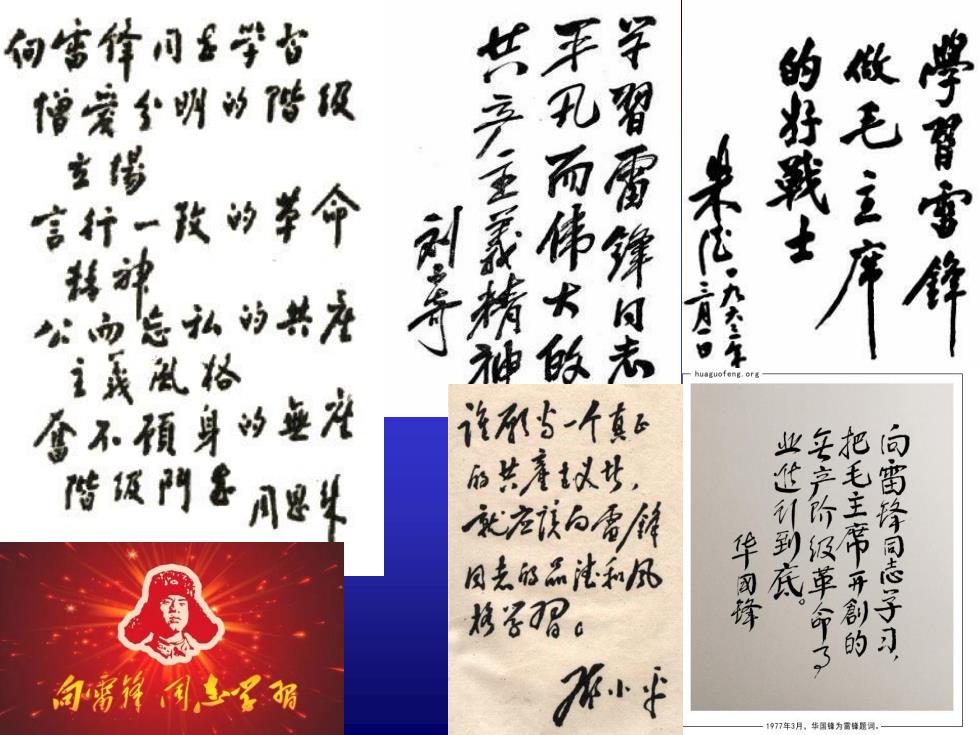 向雷锋同志学习
憎爱分明的階级
立場
言行一致的革命
精神
公而忘私的共產
主義風格
奮不顧身的無產
階级鬥志
周恩来
学習雷鋒同志
平凡而伟大的
共产主義精神
刘少奇
學習雷鋒
做毛主席
的好戰士
朱德
一九六三年
三月一日
谁愿当一个真正
的共產主义者，
就应该向雷鋒
同志的品德和风
格学習。
邓小平
huaguofeng.org
向雷锋同志学习，
把毛主席开創的
无产阶级革命事
业进行到底。
华國锋
1977年3月，华国锋为雷锋题词。
向雷鋒同志学習